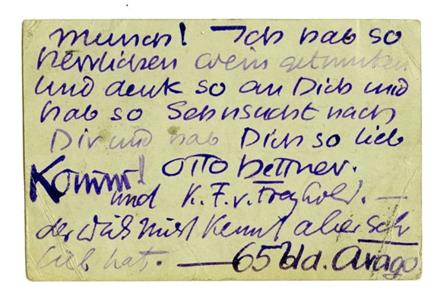 Mensch! Ich hab so
herrlichen Wein getrunken
und denk so an Dich und
hab so Sehnsucht nach
Dir und hab Dich so lieb
Komm! Otto Hettner.
und K.F.v.Freyhold. —
der Dich nicht kennt aber sehr
lieb hat. — 65 bld. Arago